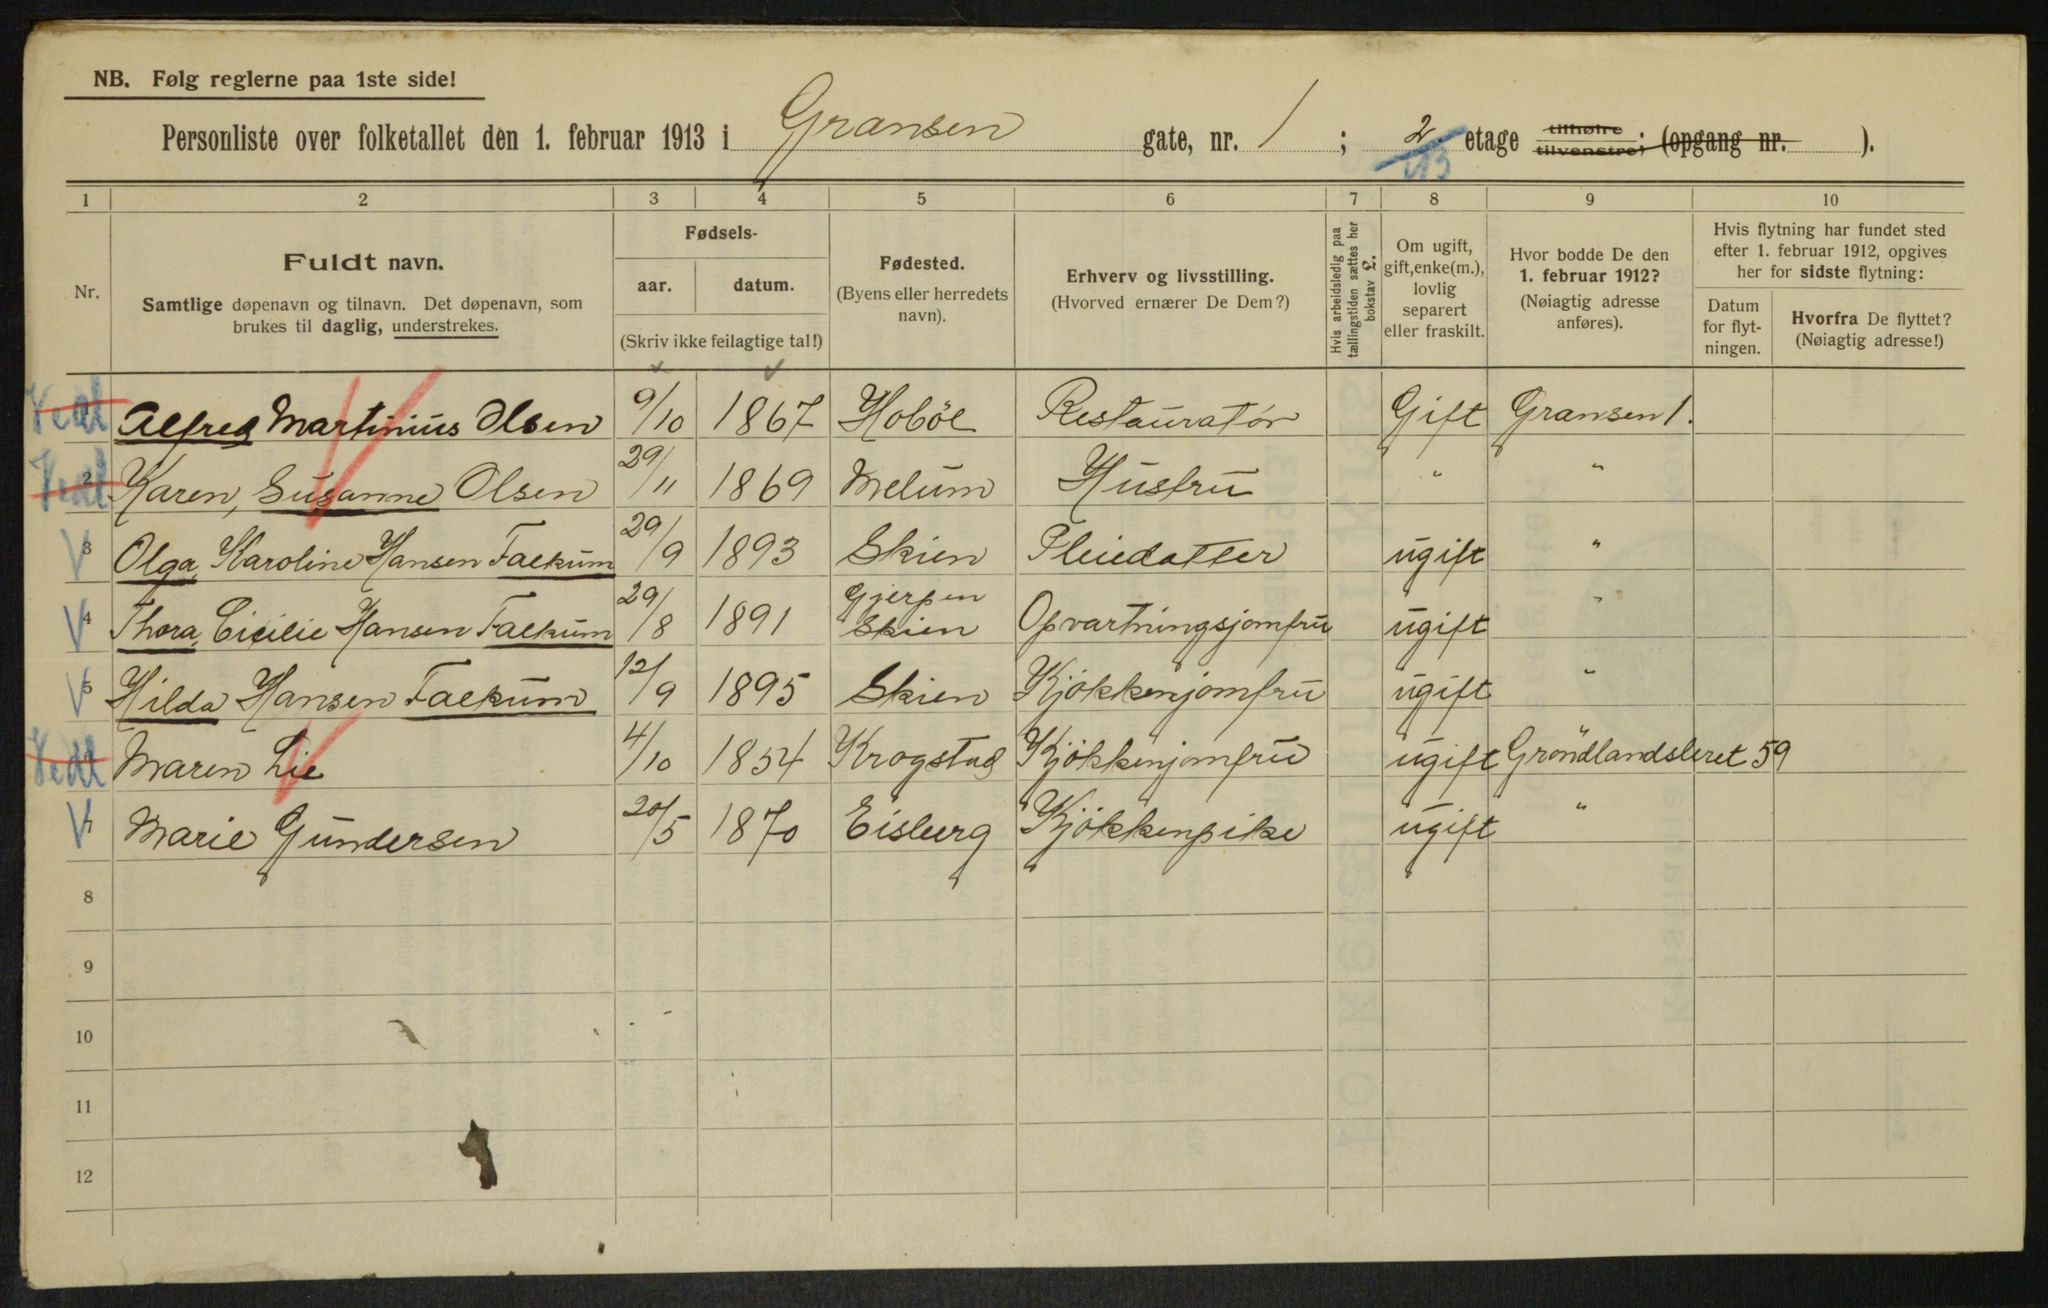 NB. Følg reglerne paa 1ste side!
Personliste over folketallet den 1. februar 1913 i Gransen gate, nr. 1 ; 2 etage tilhøire tilvenstre; (opgang nr. ).
2/3
1 2 3 4 5 6 7 8 9 10
Nr.
Fuldt navn.
Samtlige døpenavn og tilnavn. Det døpenavn, som
brukes til daglig, understrekes.
Fødsels-
aar. datum.
(Skriv ikke feilagtige tal!)
Fødested.
(Byens eller herredets
navn).
Erhverv og livsstilling.
(Hvorved ernærer De Dem?)
Hvis arbeidsledig paa
tællingstiden sættes her
bokstav L.
Om ugift,
gift, enke(m.),
lovlig
separert
eller fraskilt.
Hvor bodde De den
1. februar 1912?
(Nøiagtig adresse
anføres).
Hvis flytning har fundet sted
efter 1. februar 1912, opgives
her for sidste flytning:
Datum
for flyt-
ningen.
Hvorfra De flyttet?
(Nøiagtig adresse!)
1 Alfred Martinius Olsen 9/10 1867 Hobøl Restauratör Gift Gransen 1.
2 Karen, Susanne Olsen 29/11 1869 Melum Hustru " "
3 Olga, Karoline Hansen Falkum 29/9 1893 Skien Pleiedatter ugift "
4 Thora, Cicilie Hansen Falkum 29/8 1891 Gjerpen Skien Opvartningsjomfru ugift "
5 Hilda Hansen Falkum 12/9 1895 Skien Kjökkenjomfru ugift "
Maren Lie 4/10 1854 Krogstad Kjökkenjomfru ugift Gröndlandsleret 59
7 Marie Gundersen 20/5 1870 Eisberg Kjökkenpike ugift "
8
9
10
11
12